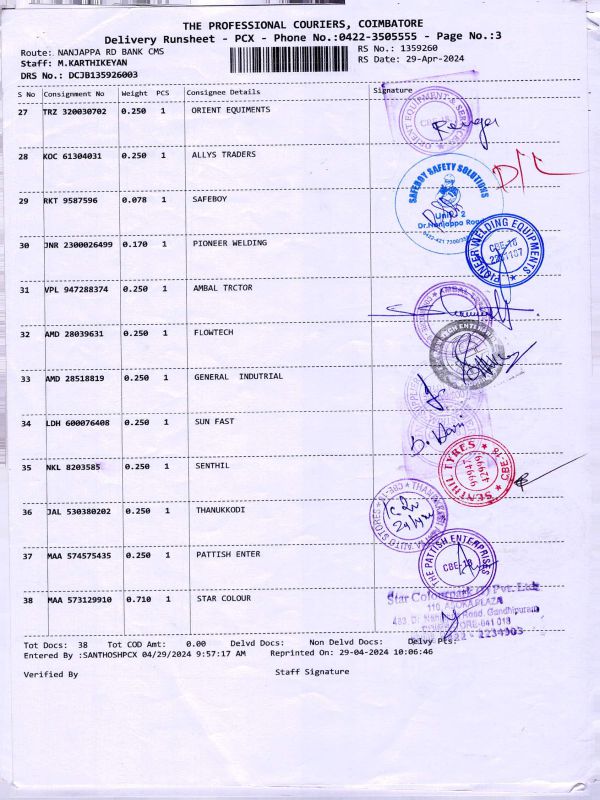 THE PROFESSIONAL COURIERS, COIMBATORE
Delivery Runsheet - PCX - Phone No.:0422-3505555 - Page No.:3
Route: NANJAPPA RD BANK CMS
RS No.: 1359260
Staff: M.KARTHIKEYAN
RS Date: 29-Apr-2024
DRS No.: DCJB135926003
S No Consignment No Weight PCS Consignee Details Signature
27 TRZ 320030702 0.250 1 ORIENT EQUIMENTS
28 KOC 61304031 0.250 1 ALLYS TRADERS
29 RKT 9587596 0.078 1 SAFEBOY
SAFEBOY SAFETY SOLUTIONS
Unit: 2
Dr.Nanjappa Road
30 JNR 2300026499 0.170 1 PIONEER WELDING
PIONEER WELDING EQUIPMENTS
CBE-18
31 VPL 947288374 0.250 1 AMBAL TRCTOR
32 AMD 28039631 0.250 1 FLOWTECH
33 AMD 28518819 0.250 1 GENERAL INDUTRIAL
34 LDH 600076408 0.250 1 SUN FAST
35 NKL 8203585 0.250 1 SENTHIL
SENTHIL TYRES
CBE-18
36 JAL 530380202 0.250 1 THANUKKODI
37 MAA 574575435 0.250 1 PATTISH ENTER
THE PATTISH ENTERPRISES
CBE-18
38 MAA 573129910 0.710 1 STAR COLOUR
Star Colourpark (I) Pvt. Ltd.
110, ASOKA PLAZA
Road, Gandhipuram
Tot Docs: 38 Tot COD Amt: 0.00 Delvd Docs: Non Delvd Docs: Delvy Pts:
Entered By :SANTHOSHPCX 04/29/2024 9:57:17 AM Reprinted On: 29-04-2024 10:06:46
Verified By Staff Signature